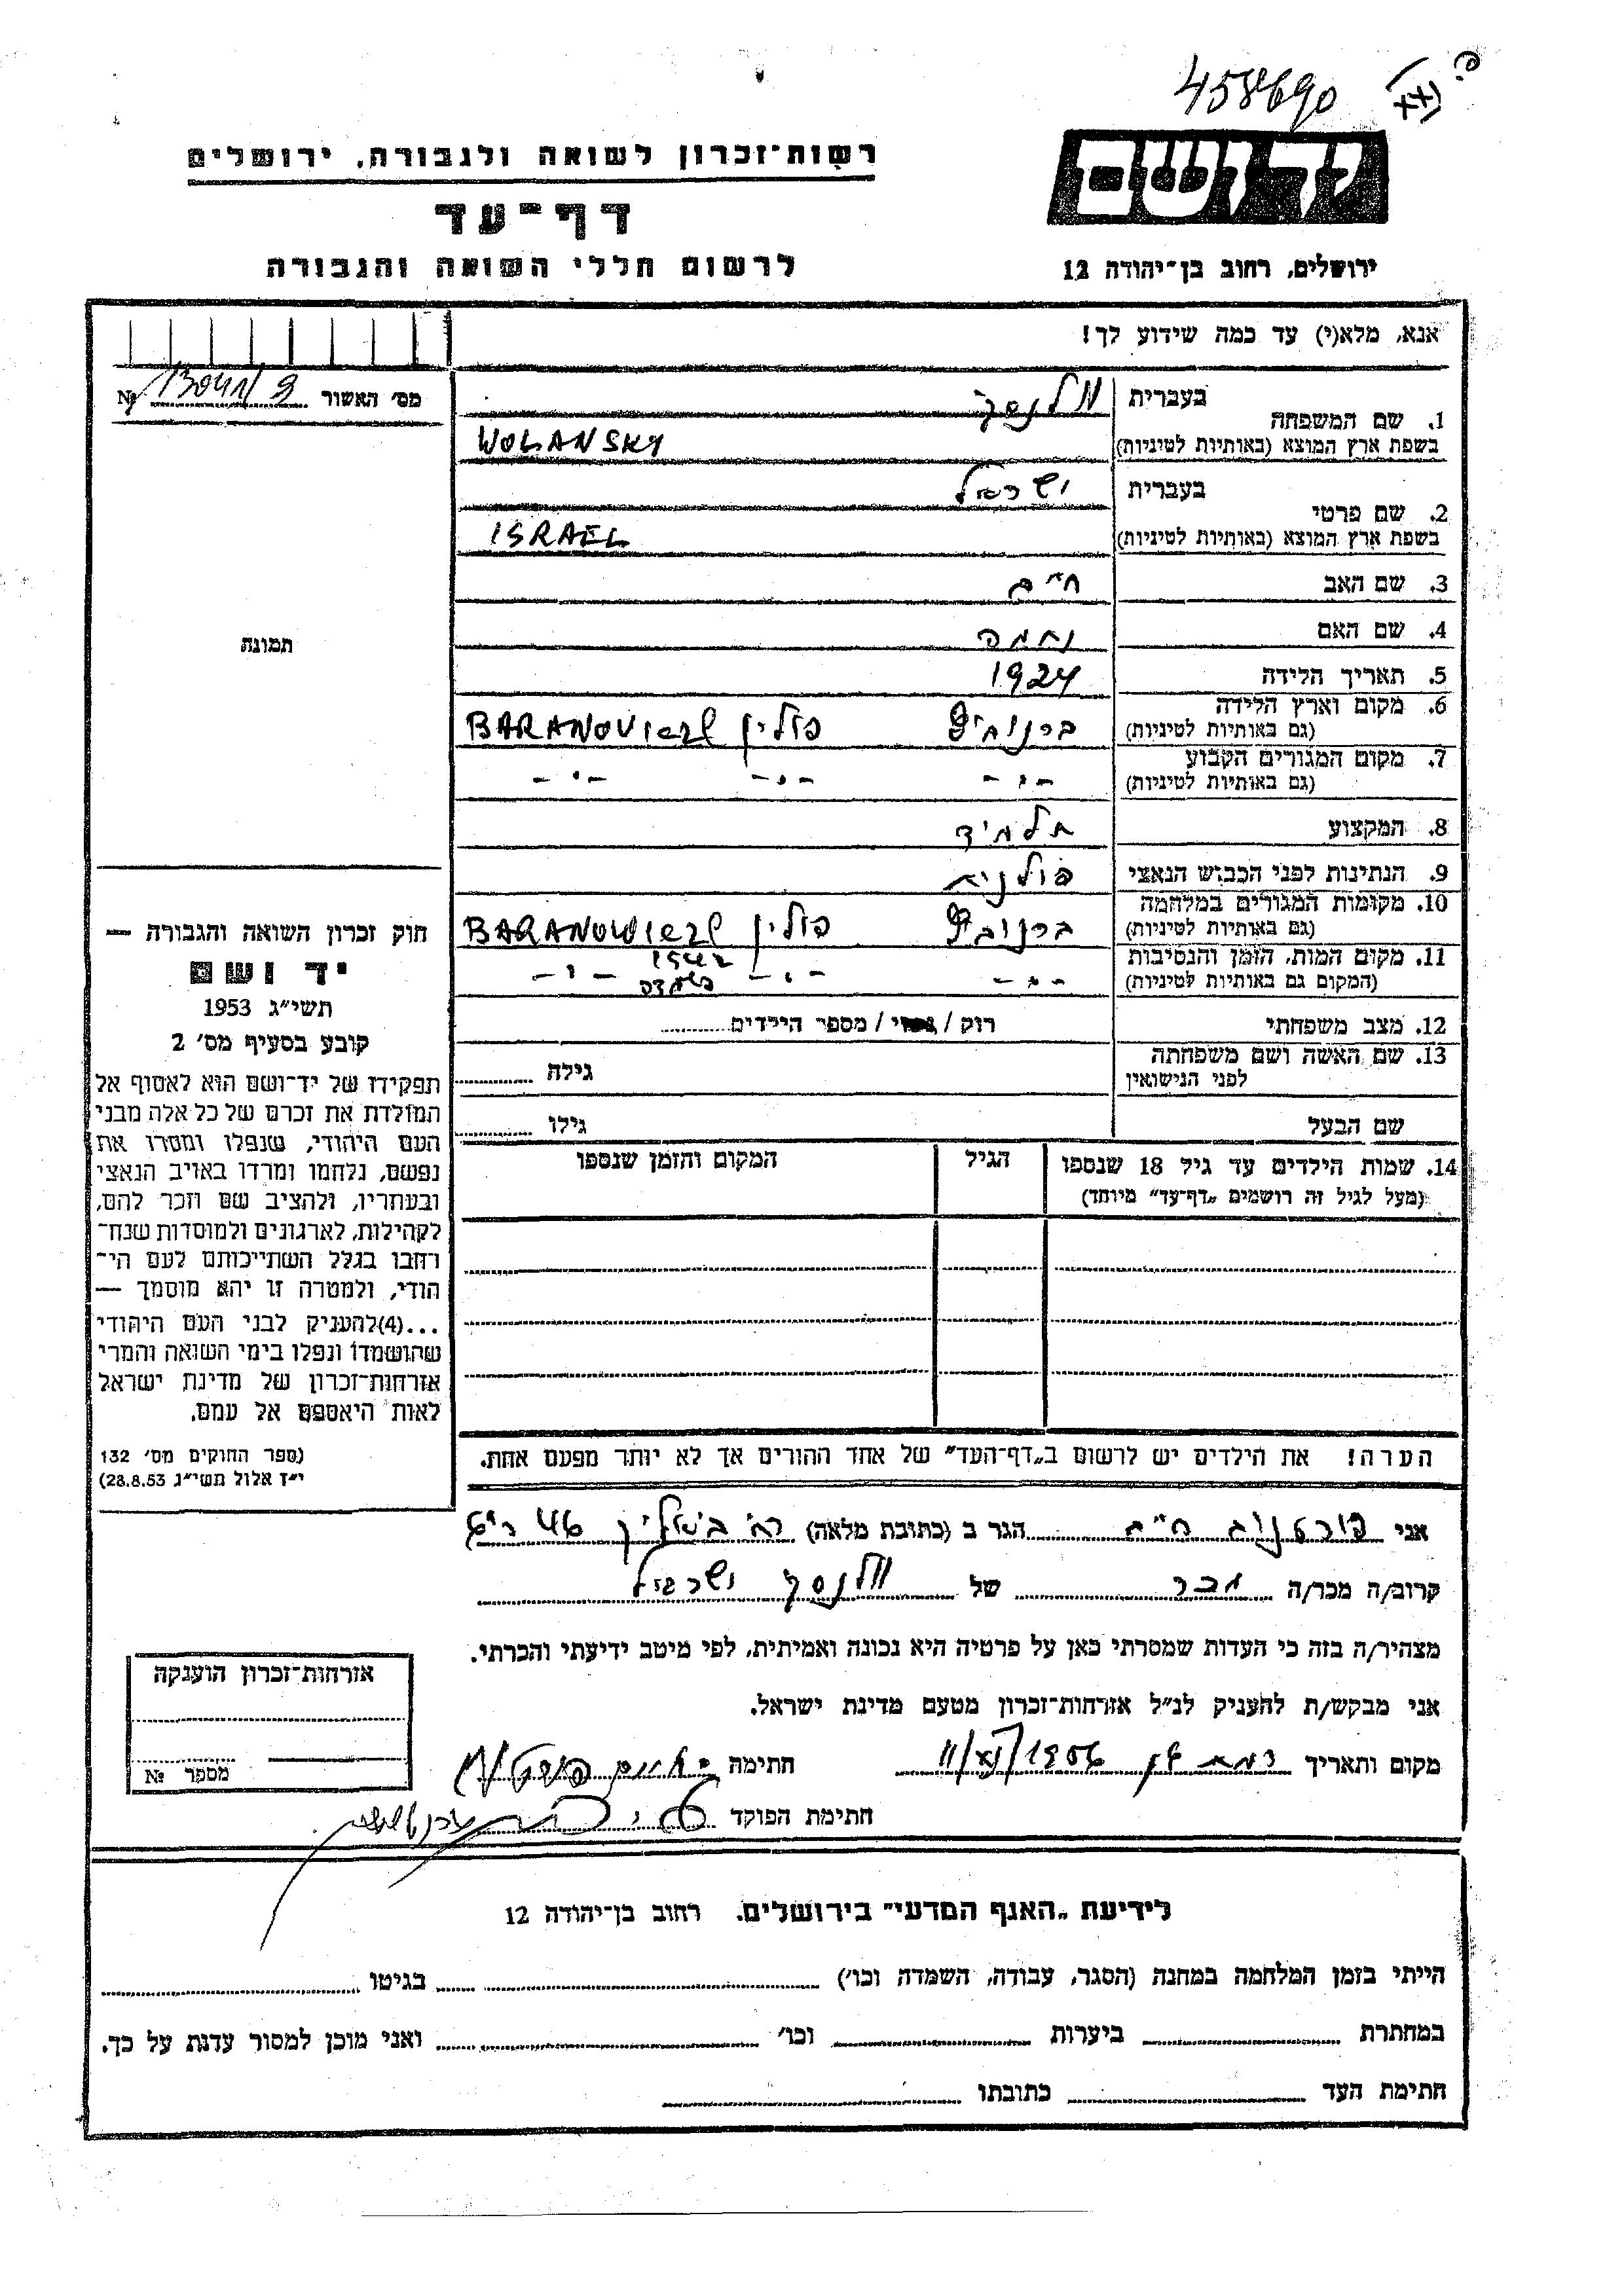 458690
רשות־זכרון לשואה ולגבורה, ירושלים
יד ושם
דף־עד
לרשום חללי השואה והגבורה
ירושלים, רחוב בן־יהודה 12
אנא, מלא(י) עד כמה שידוע לך!
מס׳ האשור №
1. שם המשפחה
בעברית וולנסקי
בשפת ארץ המוצא (באותיות לטיניות) WOLANSKY
2. שם פרטי
בעברית ישראל
בשפת ארץ המוצא (באותיות לטיניות) ISRAEL
3. שם האב חיים
4. שם האם נחמה
5. תאריך הלידה 1924
6. מקום וארץ הלידה
(גם באותיות לטיניות) ברנוביץ פולין BARANOVICZE
7. מקום המגורים הקבוע
(גם באותיות לטיניות) -"- -"- -"-
8. המקצוע תלמיד
9. הנתינות לפני הכבוש הנאצי פולנית
10. מקומות המגורים במלחמה
(גם באותיות לטיניות) ברנוביץ פולין BARANOWICZE
11. מקום המות, הזמן והנסיבות 1942
(המקום גם באותיות לטיניות) -"- -"- בשמדה -"-
12. מצב משפחתי רוק / נשוי / מספר הילדים
13. שם האשה ושם משפחתה
לפני הנישואין גילה
שם הבעל גילו
14. שמות הילדים עד גיל 18 שנספו הגיל המקום והזמן שנספו
(מעל לגיל זה רושמים „דף־עד״ מיוחד)
הערה! את הילדים יש לרשום ב„דף־העד״ של אחד ההורים אך לא יותר מפעם אחת.
תמונה
חוק זכרון השואה והגבורה —
יד ושם
תשי״ג 1953
קובע בסעיף מס׳ 2
תפקידו של יד־ושם הוא לאסוף אל
המולדת את זכרם של כל אלה מבני
העם היהודי, שנפלו ומסרו את
נפשם, נלחמו ומרדו באויב הנאצי
ובעוזריו, ולהציב שם וזכר להם,
לקהילות, לארגונים ולמוסדות שנח־
רחבו בגלל השתייכותם לעם הי־
הודי, ולמטרה זו יהא מוסמך —
...(4)להעניק לבני העם היהודי
שהושמדו ונפלו בימי השואה והמרי
אזרחות־זכרון של מדינת ישראל
לאות היאספם אל עמם.
(ספר החוקים מס׳ 132
י״ז אלול תשי״ג 28.8.53)
אני פורטנוב חיים הגר ב (כתובת מלאה) רח׳ ביאליק 46 ר״ג
קרוב/ה מכר/ה מכר של וולנסקי ישראל
מצהיר/ה בזה כי העדות שמסרתי כאן על פרטיה היא נכונה ואמיתית, לפי מיטב ידיעתי והכרתי.
אני מבקש/ת להעניק לנ״ל אזרחות־זכרון מטעם מדינת ישראל.
מקום ותאריך רמת גן 11/XI/1956 חתימה
חתימת הפוקד
אזרחות־זכרון הוענקה
מספר №
לידיעת „האגף המדעי״ בירושלים. רחוב בן־יהודה 12
הייתי בזמן המלחמה במחנה (הסגר, עבודה, השמדה וכו׳) בגיטו
במחתרת ביערות וכו׳ ואני מוכן למסור עדות על כך.
חתימת העד כתובתו